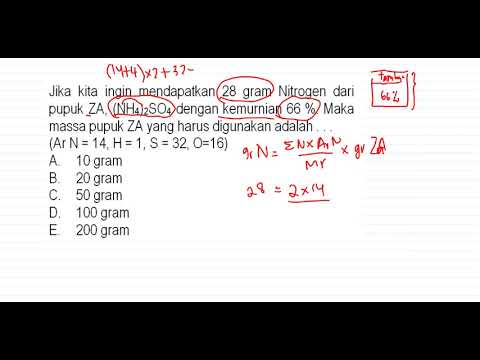 (14+4)×2+32-
Jika kita ingin mendapatkan 28 gram Nitrogen dari
pupuk ZA, (NH4)2SO4 dengan kemurnian 66 %. Maka
massa pupuk ZA yang harus digunakan adalah . . .
(Ar N = 14, H = 1, S = 32, O=16)
A. 10 gram
B. 20 gram
C. 50 gram
D. 100 gram
E. 200 gram
66%
gr N = Σ N × Ar N / Mr × gr ZA
28 = 2 × 14